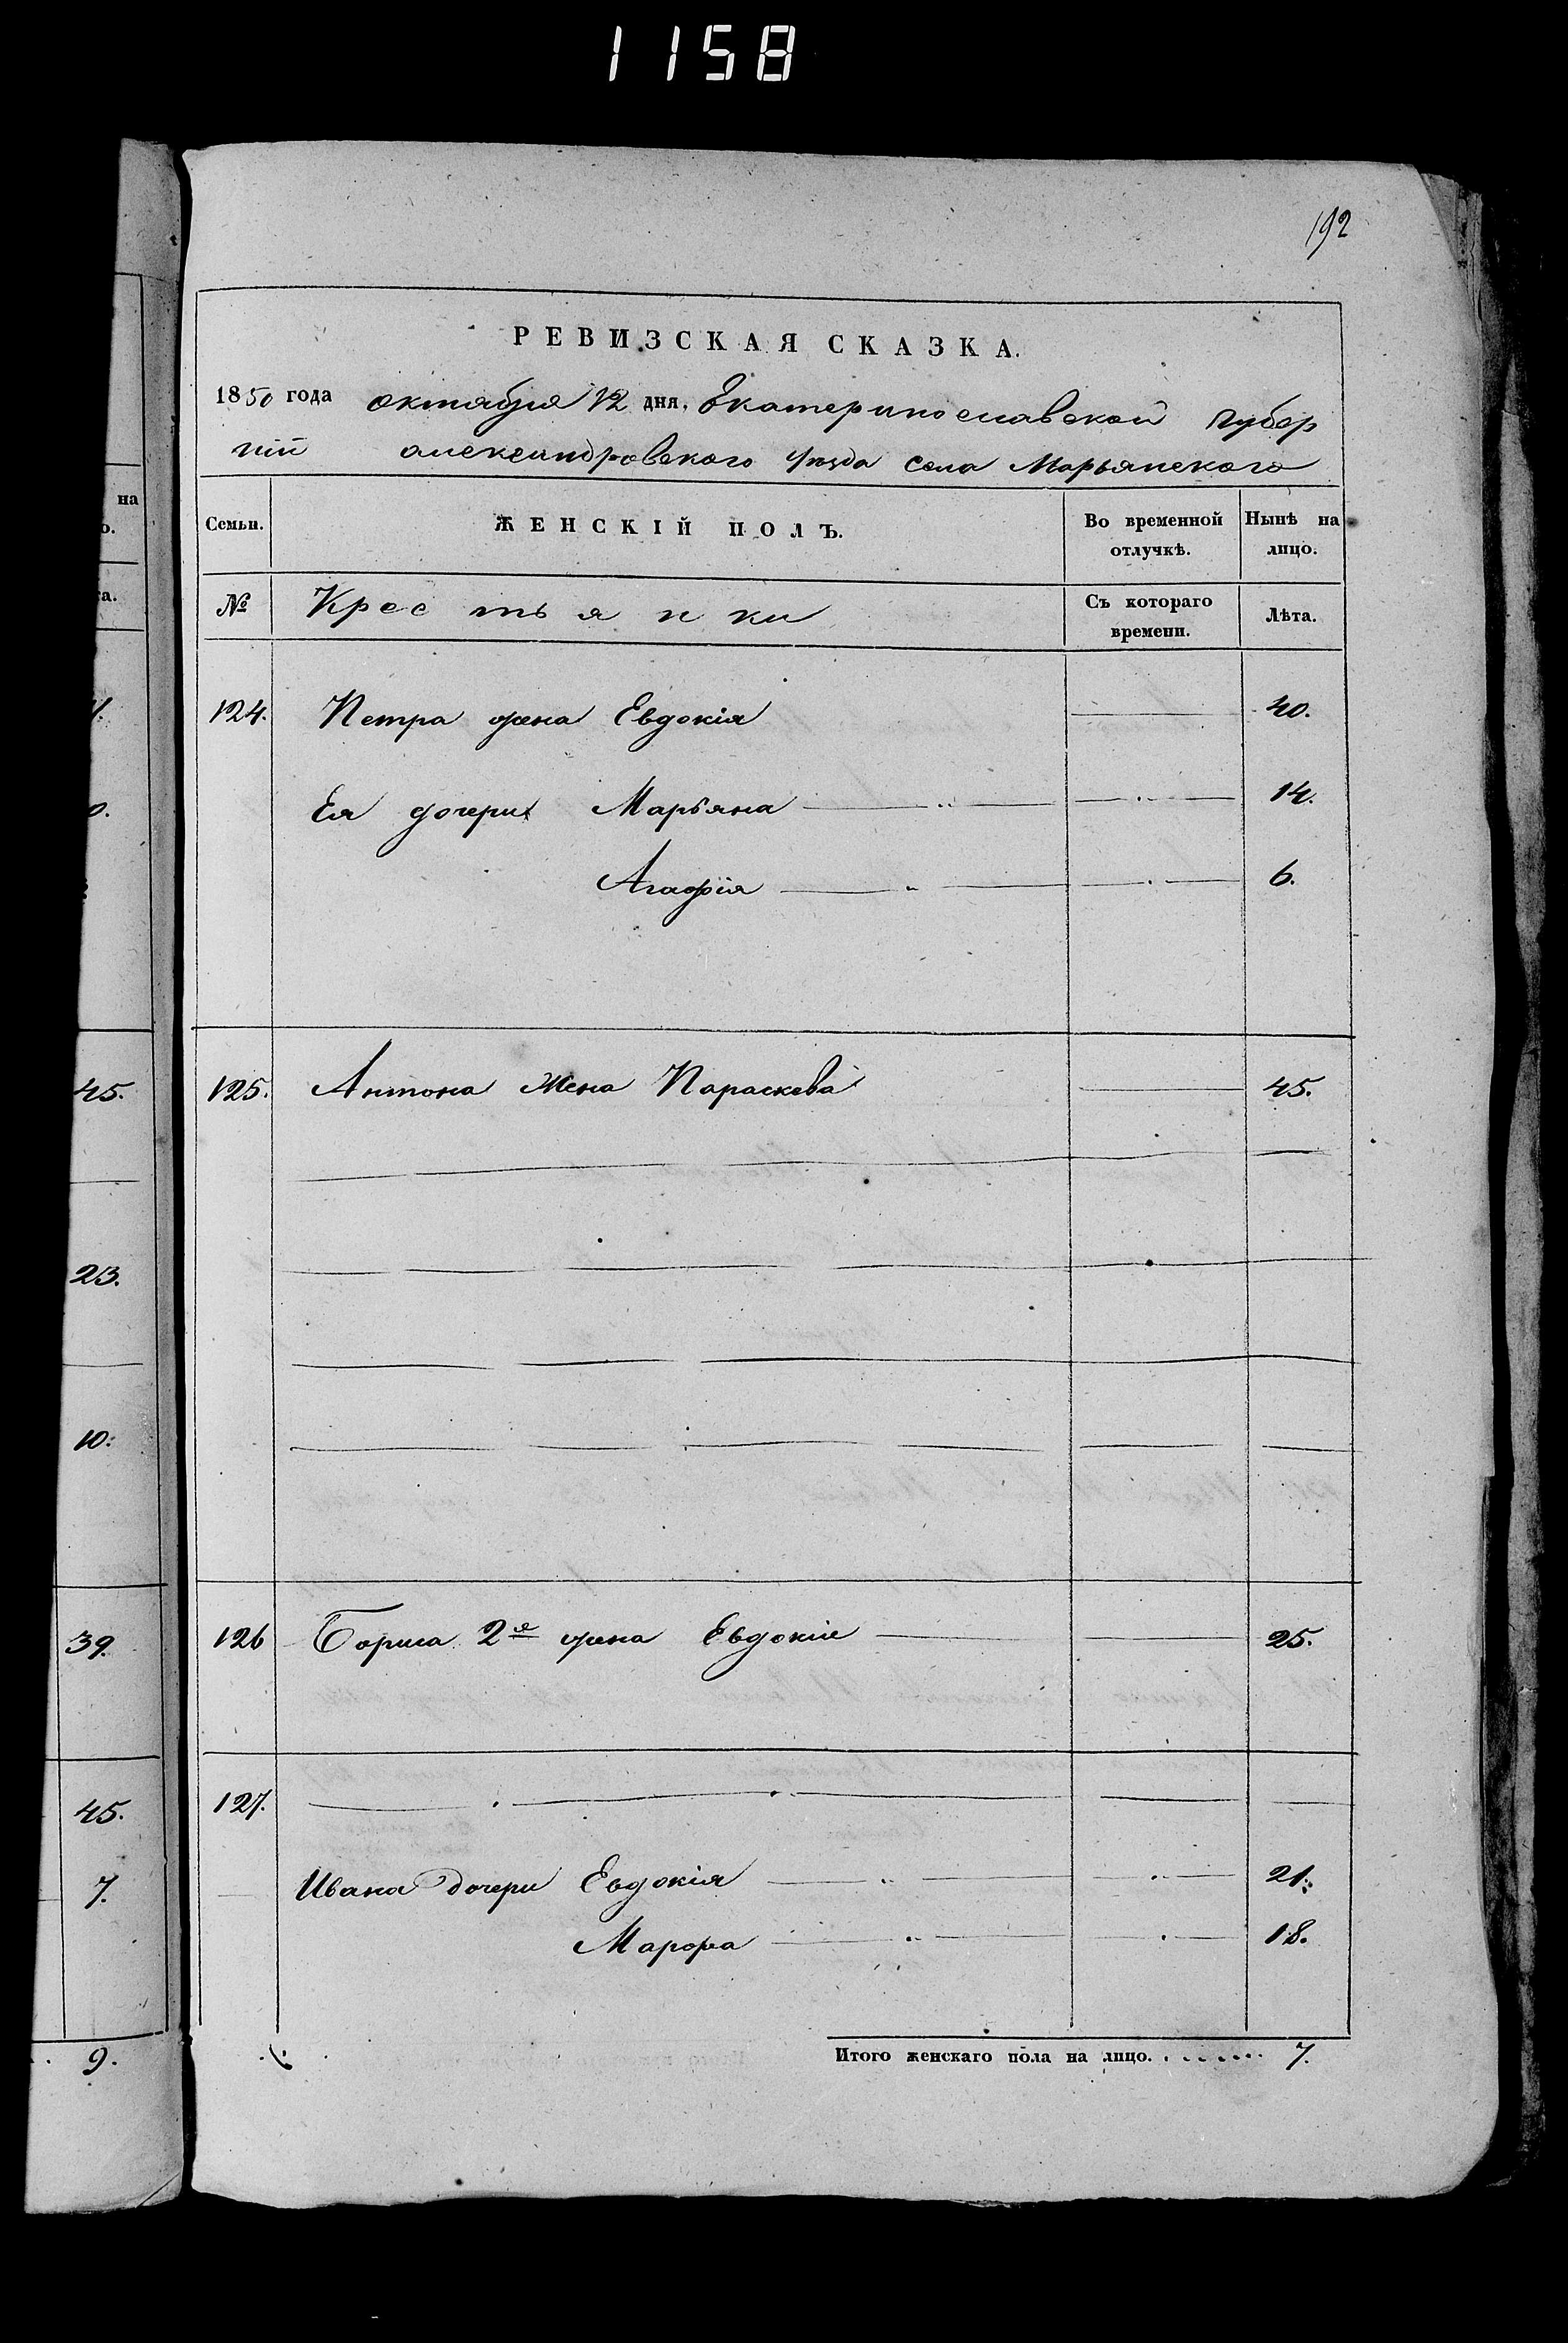 1158
192
РЕВИЗСКАЯ СКАЗКА.
1850 года октября 12 дня, Екатеринославской губер
нiи александровского уѣзда села Марьянского
на
о.
Семьи. ЖЕНСКІЙ ПОЛЪ. Во временной отлучкѣ. Нынѣ на лицо.
та.
№ Крестьянки Съ котораго времени. Лѣта.
124. Петра жена Евдокія 40.
Ея дочери Марьяна 14.
0.
Агафія 6.
45. 125. Антона жена Параскева 45.
23.
10.
39. 126 Бориса 2я жена Евдокіе 25.
45. 127.
7. Ивана дочери Евдокія 21.
Марфа 18.
9. Итого женскаго пола на лицо. 7.